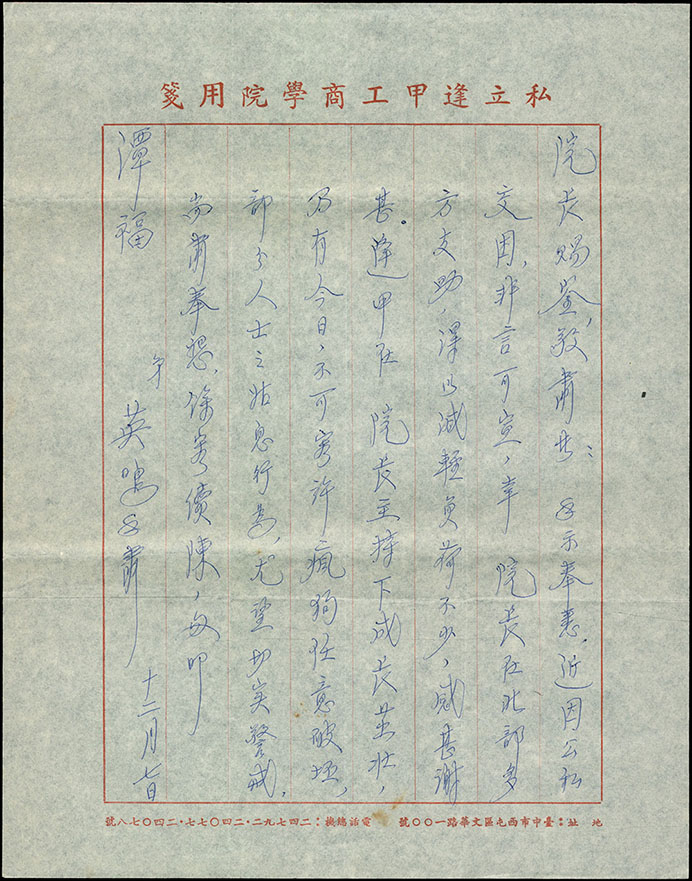 私立逢甲工商學院用箋
院長賜鑒，敬肅者：手示奉悉。近因公私
交困，非言可宣，幸　院長在北部多
方支助，得以減輕負荷不少，感甚謝
甚。逢甲在　院長主持下成長茁壯，
乃有今日，不可容許瘋狗任意破坏，
部分人士之姑息行為，尤望切实警戒。
耑肅奉懇，餘容續陳，敬叩
潭福
弟
英鳴手肅
十二月七日
地　址：臺中市西屯區文華路一００號　電話總機：二四七九二·二四０七七·二四０七八號